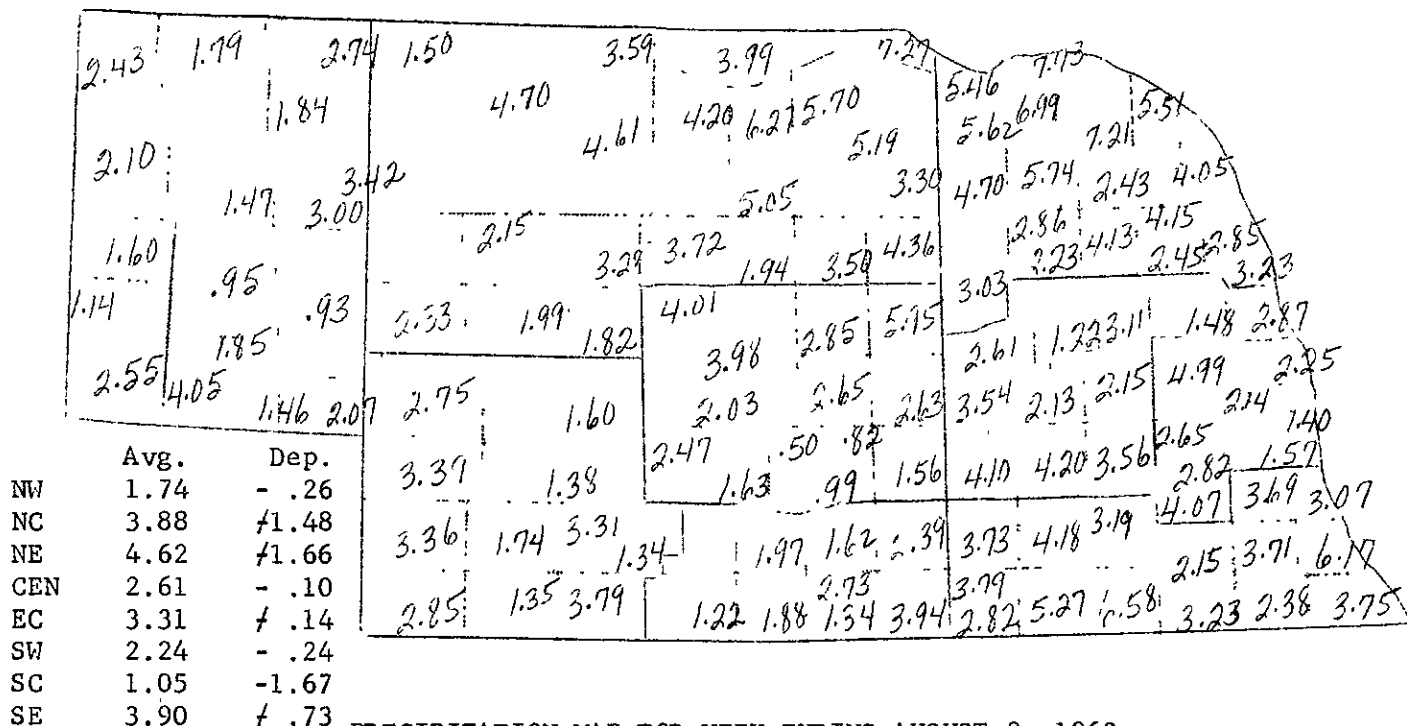 2.43 1.79 2.74 1.50 3.59 3.99 7.27 5.46 7.73
1.84 4.70 4.61 4.20 6.27 5.70 5.19 5.62 6.99 7.21 5.51
2.10 3.42 3.30 4.70 5.74 2.43 4.05
1.47 3.00 5.05 2.86 4.15
1.60 2.15 3.29 3.72 1.94 3.50 4.36 2.23 4.13 2.45 2.85
1.14 .95 .93 4.01 3.03 3.23
2.33 1.99 1.82 3.98 2.85 5.75 2.61 1.22 3.11 1.48 2.87
1.85
2.55 4.05 1.46 2.07 2.75 1.60 2.03 2.65 2.63 3.54 2.13 2.15 4.99 2.25
2.14 1.40
3.37 1.38 2.47 1.63 .50 .82 .99 1.56 4.10 4.20 3.56 2.65 2.82 1.57
3.36 1.74 3.31 1.34 1.97 1.62 2.39 3.73 4.18 3.19 4.07 3.69 3.07
2.85 1.35 3.79 2.73 3.79 2.15 3.71 6.17
1.22 1.88 1.34 3.94 2.82 5.27 6.58 3.23 2.38 3.75
Avg. Dep.
NW 1.74 - .26
NC 3.88 ƚ1.48
NE 4.62 ƚ1.66
CEN 2.61 - .10
EC 3.31 ƚ .14
SW 2.24 - .24
SC 1.05 -1.67
SE 3.90 ƚ .73